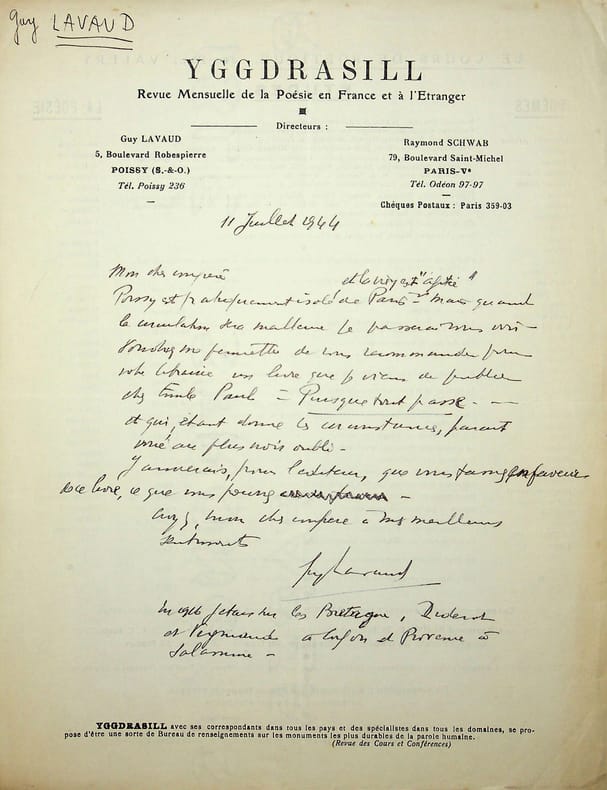 Guy LAVAUD
YGGDRASILL
Revue Mensuelle de la Poésie en France et à l'Etranger
Directeurs :
Guy LAVAUD
5, Boulevard Robespierre
POISSY (S.-&-O.)
Tél. Poissy 236
Raymond SCHWAB
79, Boulevard Saint-Michel
PARIS-Vᵉ
Tél. Odéon 97-97
Chèques Postaux : Paris 359-03
11 Juillet 1944
Mon cher
est "agité"
Poissy est pratiquement isolé de Paris - mais quand
la circulation sera meilleure je passerai vous voir -
permettre de vous recommander pour
votre librairie un livre que je viens de publier
chez Emile Paul - Puisque tout passe - -
et qui, étant donné les circonstances, parait
au plus noir oubli -
J'aimerais, pour l'éditeur, que vous fassiez en faveur
de ce livre, ce que vous pourrez -
mon cher à mes meilleurs
sentiments
Guy Lavaud
En 1916 j'étais sur les Bretagne, Diderot
et Vergniaud et Provence à
Salamine -
YGGDRASILL avec ses correspondants dans tous les pays et des spécialistes dans tous les domaines, se pro-
pose d'être une sorte de Bureau de renseignements sur les monuments les plus durables de la parole humaine.
(Revue des Cours et Conférences)